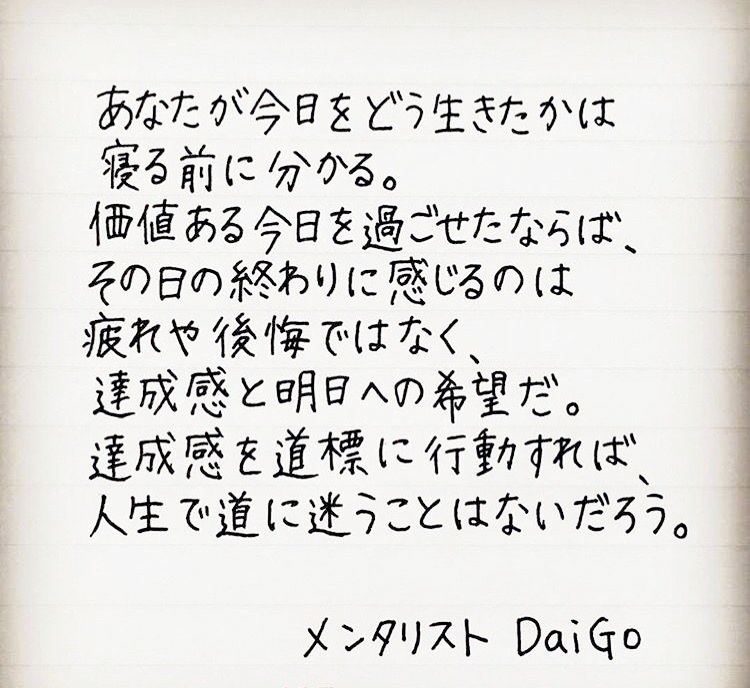 あなたが今日をどう生きたかは
寝る前に分かる。
価値ある今日を過ごせたならば、
その日の終わりに感じるのは
疲れや後悔ではなく、
達成感と明日への希望だ。
達成感を道標に行動すれば、
人生で道に迷うことはないだろう。
メンタリスト DaiGo